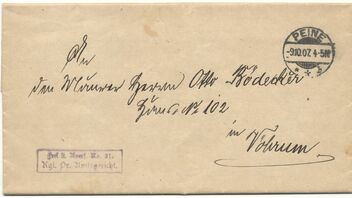 PEINE
-9.10.07. 4-5N
An
den Maurer Herrn Otto Bödecker
Haus No 102
in Vöhrum.
Frei lt. Avers. No. 21.
Kgl. Pr. Amtsgericht.